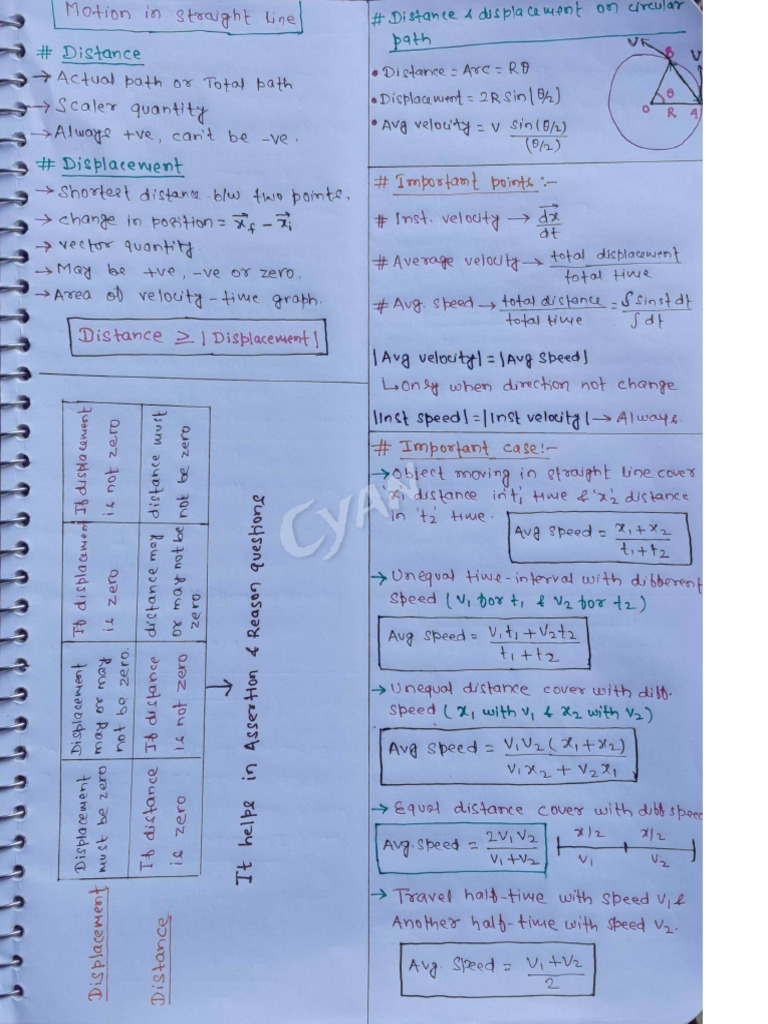 Motion in straight Line
# Distance
→ Actual path or Total path
→ Scaler quantity
→ Always +ve, can't be -ve.
# Displacement
→ Shortest distance b/w two points.
→ change in position = x⃗f - x⃗i
→ vector quantity
→ May be +ve, -ve or zero.
→ Area of velocity-time graph.
Distance ≥ |Displacement|
If displacement
is not zero
distance must
not be zero
If displacement
is zero
distance may
or may not be
zero.
Displacement
may or may
not be zero.
If distance
is not zero
Displacement
must be zero
If distance
is zero
Displacement
Distance
→ It helps in Assertion & Reason questions
# Distance & displacement on circular
path
• Distance = Arc = Rθ
• Displacement = 2R sin(θ/2)
• Avg velocity = V sin(θ/2)/(θ/2)
V
B
V
θ
O
R
A
# Important points :-
# Inst. velocity → dx⃗/dt
# Average velocity → total displacement/total time
# Avg. speed → total distance/total time = ∫sinst dt/∫dt
|Avg velocity| = |Avg speed|
↳ only when direction not change
|Inst speed| = |Inst velocity| → Always.
# Important case:-
→ Object moving in straight line cover
'x₁' distance in 't₁' time & 'x₂' distance
in 't₂' time.
Avg speed = x₁+x₂/t₁+t₂
→ Unequal time-interval with different
speed (V₁ for t₁ & V₂ for t₂)
Avg speed = V₁t₁+V₂t₂/t₁+t₂
→ Unequal distance cover with diff.
speed (x₁ with V₁ & x₂ with V₂)
Avg speed = V₁V₂(x₁+x₂)/V₁x₂+V₂x₁
→ Equal distance cover with diff speed
Avg. speed = 2V₁V₂/V₁+V₂
x/2 x/2
V₁ V₂
→ Travel half-time with speed V₁ &
Another half-time with speed V₂.
Avg. speed = V₁+V₂/2
CYAN